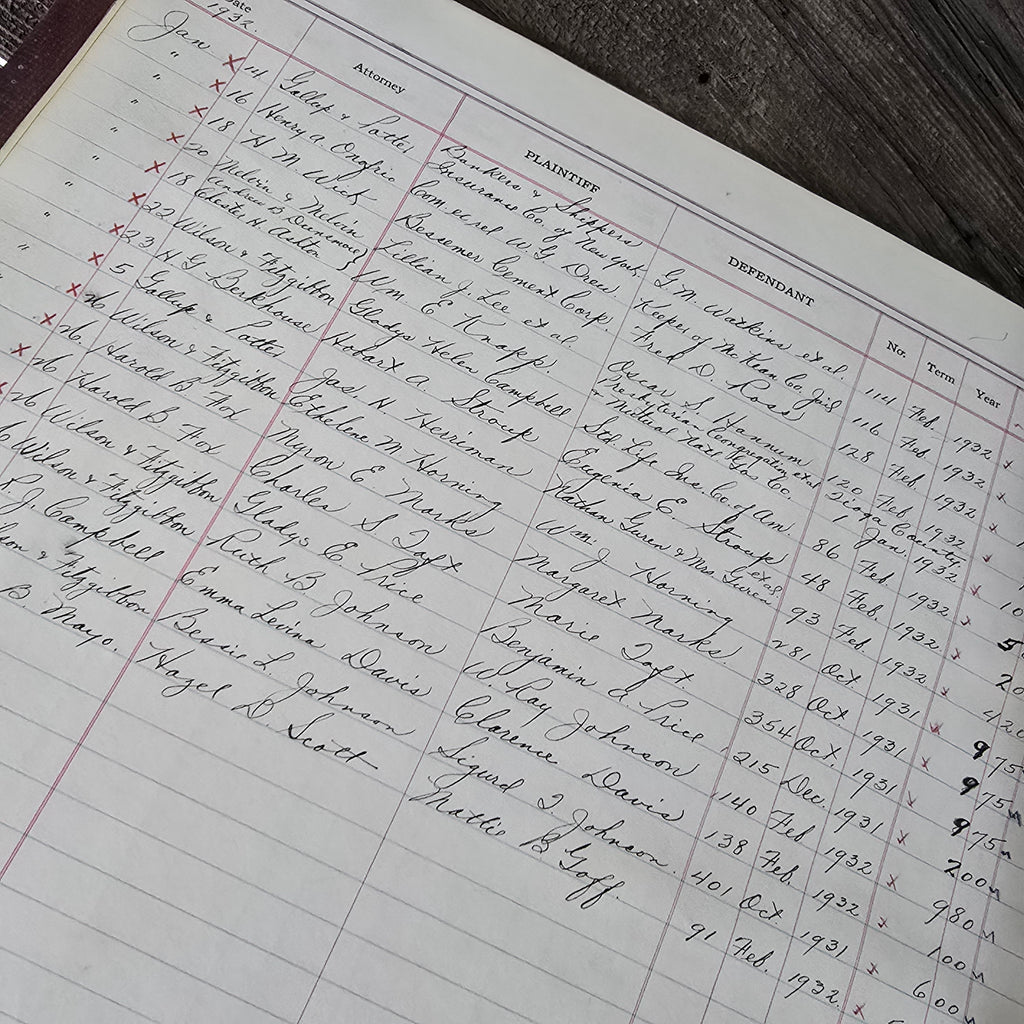 Date Attorney PLAINTIFF DEFENDANT No. Term Year
1932.
Jan. x 14 Gallup & Potter Bankers & Shippers Insurance Co. of New York G. M. Watkins et al. 114 Feb. 1932 x
" x 16 Henry A. Onofrio Com ex rel W. G. Drew Keeper of McKean Co. Jail 116 Feb 1932 x
" x 18 H. M. Wick Bessemer Cement Corp. Fred D. Ross 128 Feb. 1932 x
" x 20 Melvin & Melvin Lillian J. Lee et al Oscar S. Hannum 120 Feb. 1932
" x 18 Andrew B. Dunsmore Chester H. Ashton } Wm. E. Knapp. Presbyterian Congregation et al & Mutual Natl Gas Co. 1 Tioga County Jan. 1932 x 10
" x 22 Wilson & Fitzgibbon Gladys Helen Campbell Life Ins. Co. of Am. 86 Feb 1932 x 5
" x 23 H G Barkhouse Hobart A. Stroup Eugenia E. Stroup 48 Feb. 1932 x 20
" x 5 Gallup & Potter Jas. H. Herriman Nathan Guren & Mrs. Guren et al 93 Feb 1932 x 420
x 26 Wilson & Fitzgibbon Ethelene M Horning Wm. J Horning 281 Oct 1931 x 975
x 26 Harold B Fox Myron E Marks Margaret Marks. 328 Oct 1931 x 975
x 26 Harold B. Fox Charles S Taft Marie Taft 354 Oct 1931 x 975
x 26 Wilson & Fitzgibbon Gladys E. Price Benjamin A Price 215 Dec. 1931 x 200
Wilson & Fitzgibbon Ruth B Johnson W. Ray Johnson 140 Feb 1932 x 980
J. Campbell Emma Levina Davis Clarence Davis 138 Feb. 1932 x 100
& Fitzgibbon Bessie L. Johnson Sigurd T. Johnson. 401 Oct 1931 x 600
B. Mayo. Hazel D. Scott Mattie B Goff. 91 Feb. 1932. x